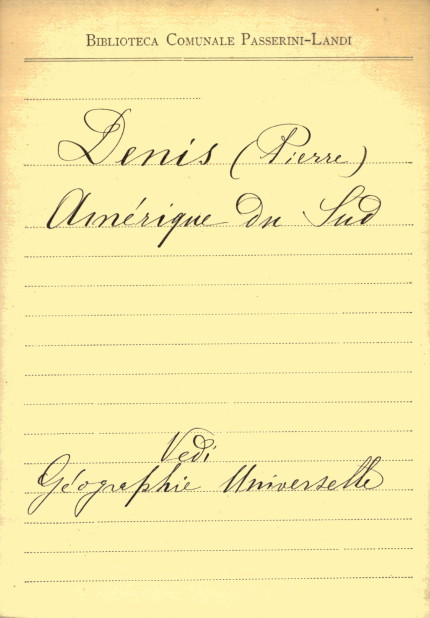 Biblioteca Comunale Passerini-Landi
Denis (Pierre)
Amérique du Sud
Vedi
Géographie Universelle